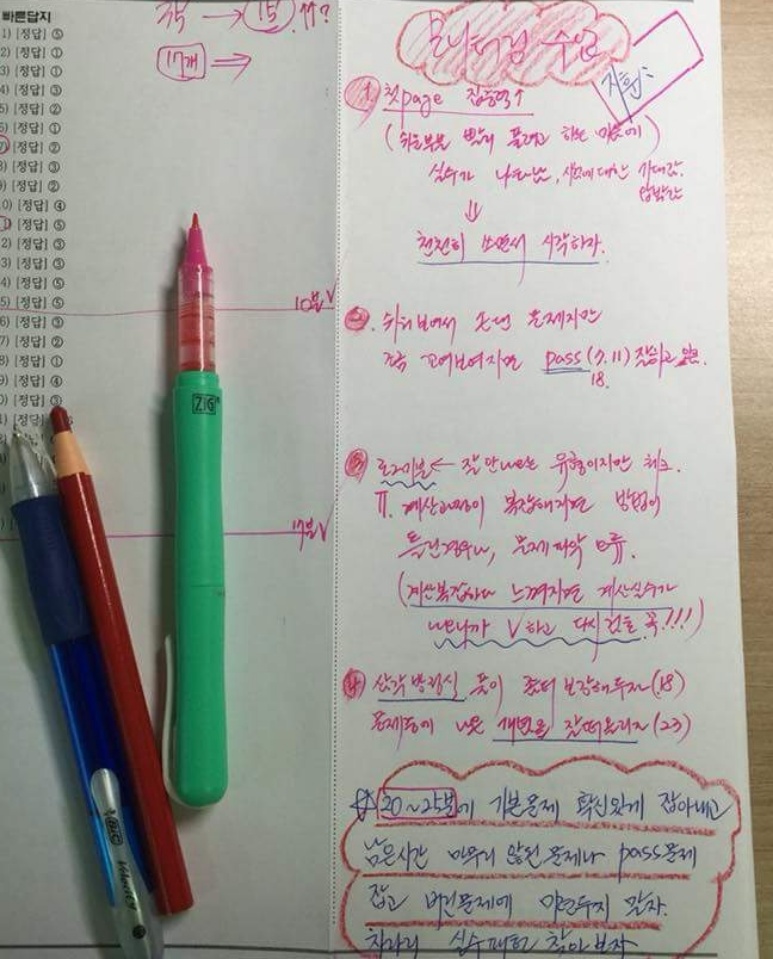 빠른답지
1) [정답] ⑤
2) [정답] ①
3) [정답] ①
4) [정답] ③
5) [정답] ②
6) [정답] ①
7) [정답] ②
8) [정답] ③
9) [정답] ②
0) [정답] ④
1) [정답] ⑤
2) [정답] ③
3) [정답] ③
4) [정답] ⑤
5) [정답] ⑤
6) [정답] ③
7) [정답] ②
8) [정답] ①
9) [정답] ④
0) [정답] ③
[정답]
→ 15
17개 ⇒
10분 V
17분 V
ZIG
BIC
Velocity
수업
① 첫page 집중력↑
(쉬운부분 빨리 풀려고 하는
실수가 나타남, 시험에 대한
압박감
⇓
천천히 쓰면서 시작하자.
②. 쉬워보여서 푸던 문제지만
조금 꼬여보여지면 pass (7, 11)
18.
③ ← 잘 안나오는 유형이지만 체크.
Ⅱ. 계산과정이 복잡해지면 방법이
틀린경우나, 문제파악 오류.
(계산복잡하다 느껴지면 계산실수가
나오니까 V하고 다시 검토 꼭!!!)
④ 삼각방정식 풀이 좀더 보강해두자 (18)
문제풀때 나온 개념을 잘떠올리자 (23)
☆ 20~25분에 기본문제 확신있게 잡아내고
남은시간 마무리 않된문제나 pass문제
잡고 버린문제에 미련두지 말자.
차라리 실수패턴 찾아보자